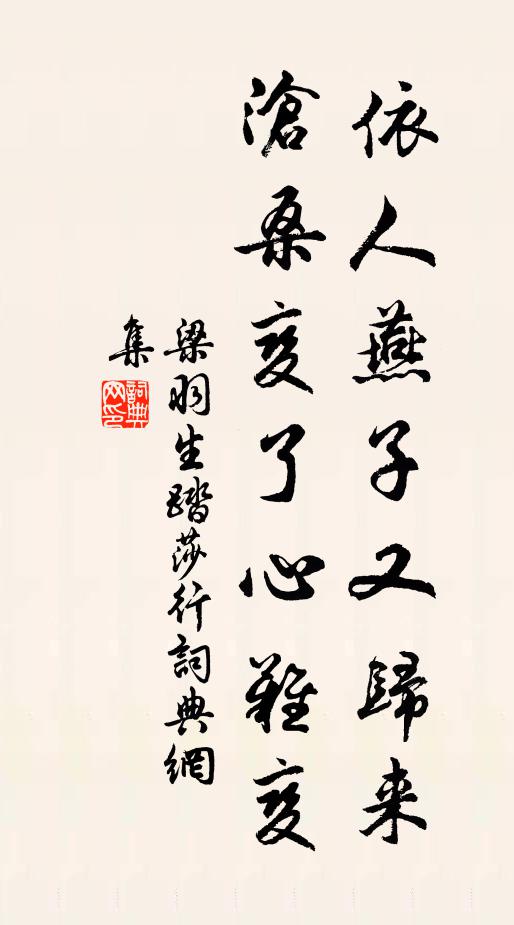 依人燕子又歸来
滄桑变了心難变
梁羽生踏莎行詞典網
集
詞典网印